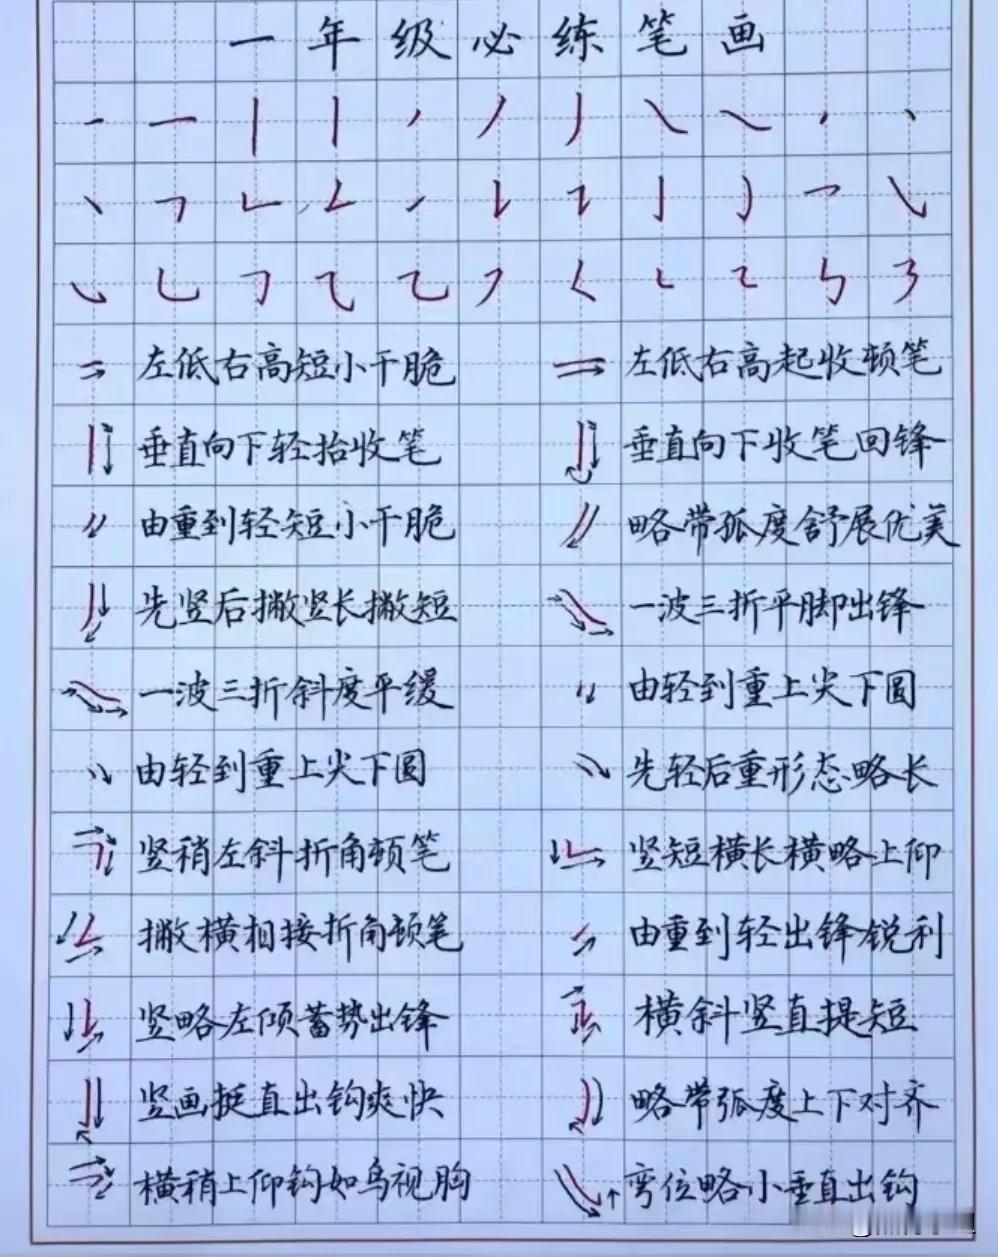 一年级必练笔画
左低右高短小干脆 左低右高起收顿笔
垂直向下轻抬收笔 垂直向下收笔回锋
由重到轻短小干脆 略带弧度舒展优美
先竖后撇竖长撇短 一波三折平脚出锋
一波三折斜度平缓 由轻到重上尖下圆
由轻到重上尖下圆 先轻后重形态略长
竖稍左斜折角顿笔 竖短横长横略上仰
撇横相接折角顿笔 由重到轻出锋锐利
竖略左倾蓄势出锋 横斜竖直提短
竖画挺直出钩爽快 略带弧度上下对齐
横稍上仰钩如鸟视胸 弯位略小垂直出钩